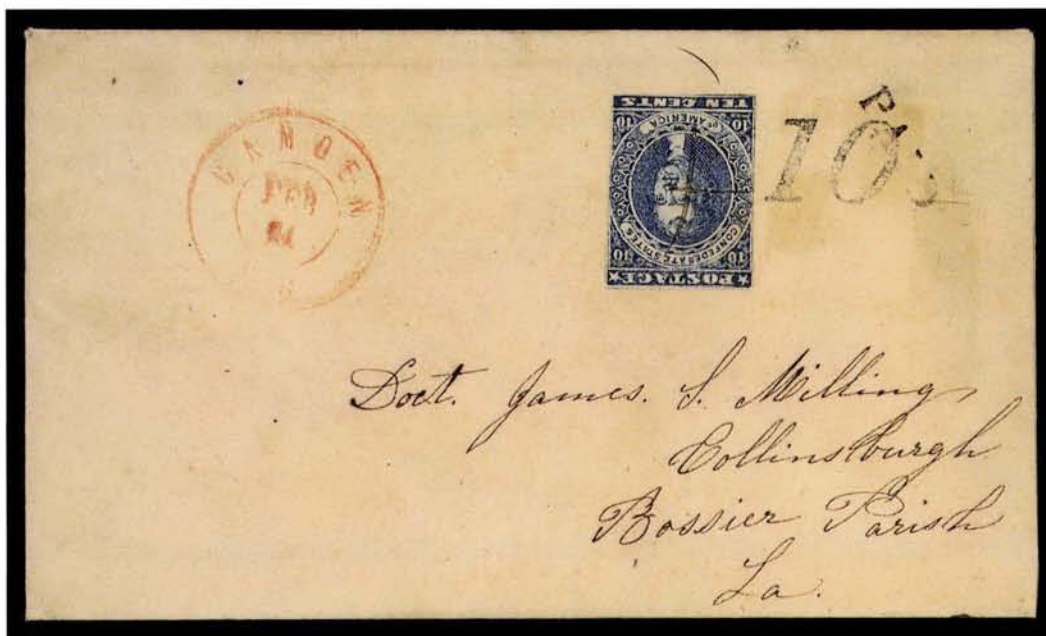 CAMDEN
FEB
POSTAGE
10 10
CONFEDERATE STATES
OF AMERICA
10 10
TEN CENTS
PA
10
Doct. James. S. Milling,
Collinsburgh
Bossier Parish
La.